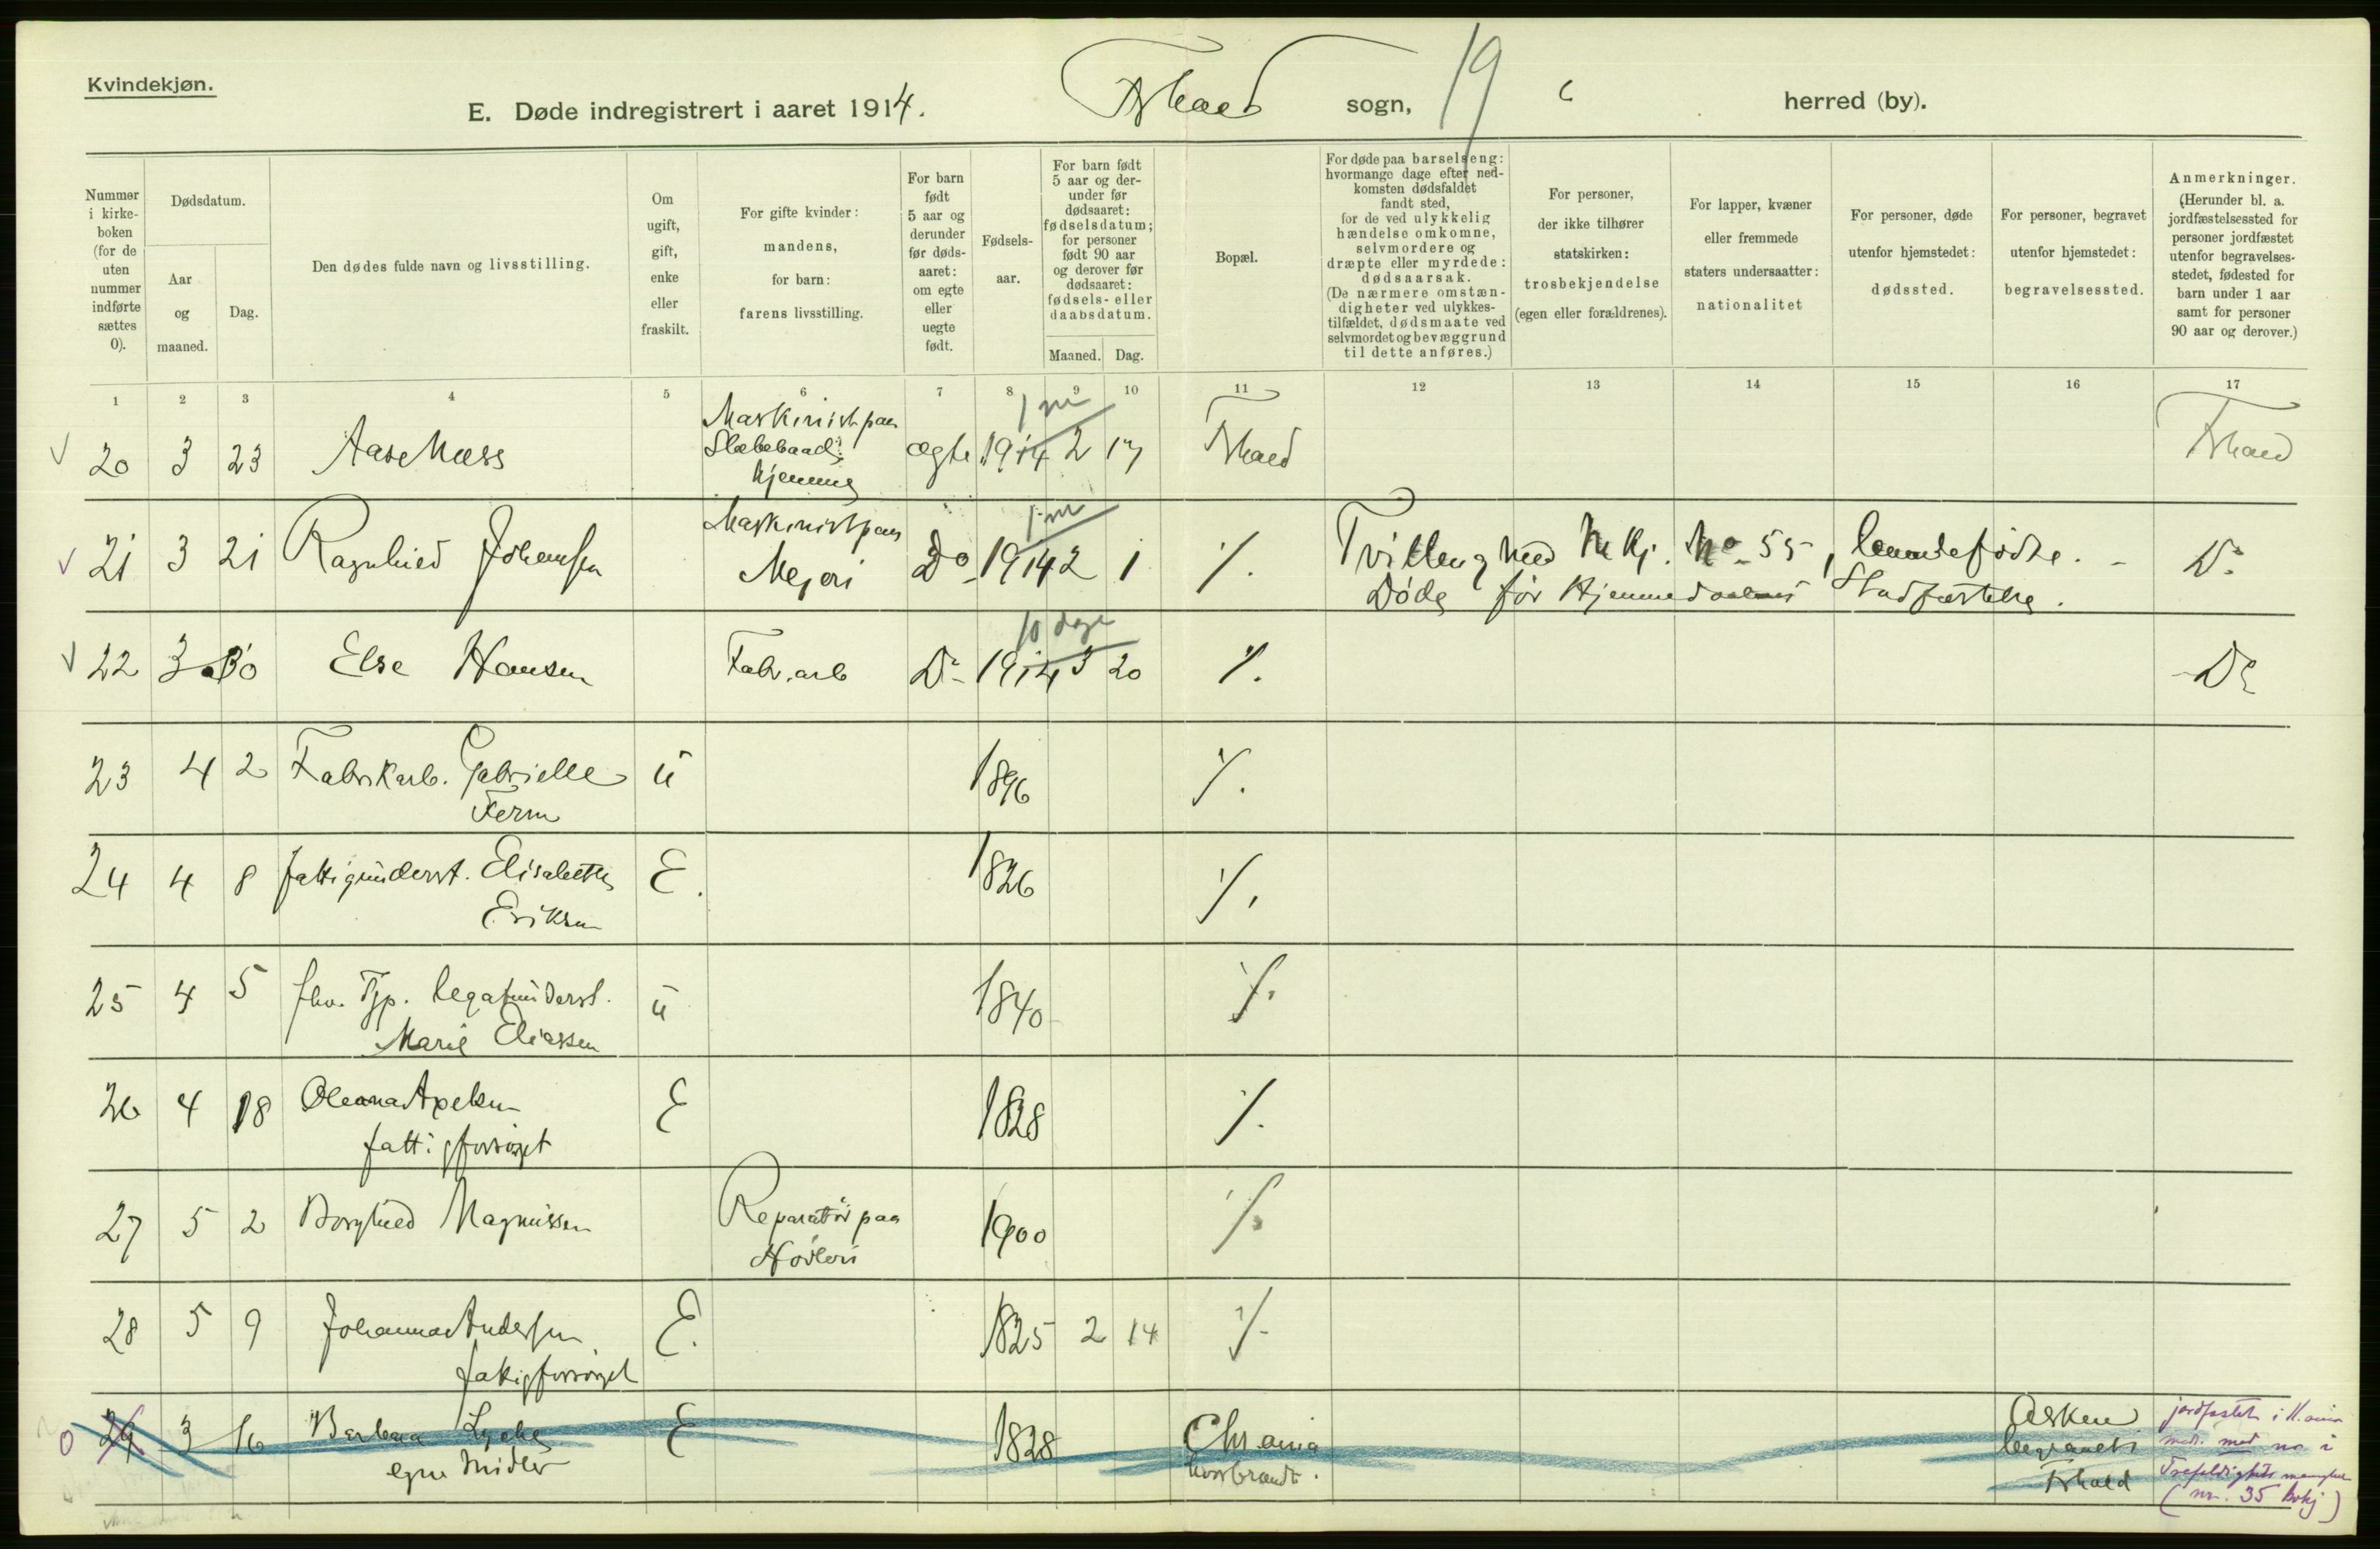 Kvindekjøn.
E. Døde indregistrert i aaret 1914.
Fr.hald sogn, 19 herred (by).
Nummer i kirke-boken (for de uten nummer indførte sættes 0).
Dødsdatum.
Aar og maaned.
Dag.
Den dødes fulde navn og livsstilling.
Om ugift, gift, enke eller fraskilt.
For gifte kvinder: mandens, for barn: farens livsstilling.
For barn født 5 aar og derunder før døds-aaret: om egte eller uegte født.
Fødsels-aar.
For barn født 5 aar og der-under før dødsaaret: fødselsdatum; for personer født 90 aar og derover før dødsaaret: fødsels- eller daabsdatum.
Maaned. Dag.
Bopæl.
For døde paa barselseng: hvormange dage efter ned-komsten dødsfaldet fandt sted, for de ved ulykkelig hændelse omkomne, selvmordere og dræpte eller myrdede: dødsaarsak. (De nærmere omstæn-digheter ved ulykkes-tilfældet, dødsmaate ved selvmordet og bevæggrund til dette anføres.)
For personer, der ikke tilhører statskirken: trosbekjendelse (egen eller forældrenes).
For lapper, kvæner eller fremmede staters undersaatter: nationalitet
For personer, døde utenfor hjemstedet: dødssted.
For personer, begravet utenfor hjemstedet: begravelsessted.
Anmerkninger. (Herunder bl. a. jordfæstelsessted for personer jordfæstet utenfor begravelses-stedet, fødested for barn under 1 aar samt for personer 90 aar og derover.)
1 2 3 4 5 6 7 8 9 10 11 12 13 14 15 16 17
20 3 23 Aase Næss Maskinist paa Slæbebaad ægte 1 m 1914 2 17 Fr.hald Fr.hald
21 3 21 Ragnhild Johansen Maskinist paa Mejeri Do 1 m 1914 2 1 %. Tvilling med M Kj. No 55, levendefødte. Do
Døde før Hjemmedaabens Stadfæstelse.
22 3 30 Else Hansen Fabr.arb Do 10 dage 1914 3 20 %. Do
23 4 2 Fabrikarb. Gabrielle Ferm u 1896 %.
24 4 8 fattigunderst. Elisabeth Eriksen E. 1826 %.
25 4 5 fhv. Tjp. legatunderst. Marie Eliassen u 1840 %.
26 4 18 Oleana Axelsen fattigforsørget E 1828 %.
27 5 2 Borghild Magnussen Reparatør paa Høvleri 1900 %.
28 5 9 Johanna Andersen fattigforsørget E. 1825 2 14 %.
0 29 3 16 Barbara Lyche egne Midler E 1828 Chr.ania hvor brændt. Asken begravet i Fr.hald jordfæstet i Kr.ania med. med no i Trefoldighets menighet (nr. 35 kvkj)